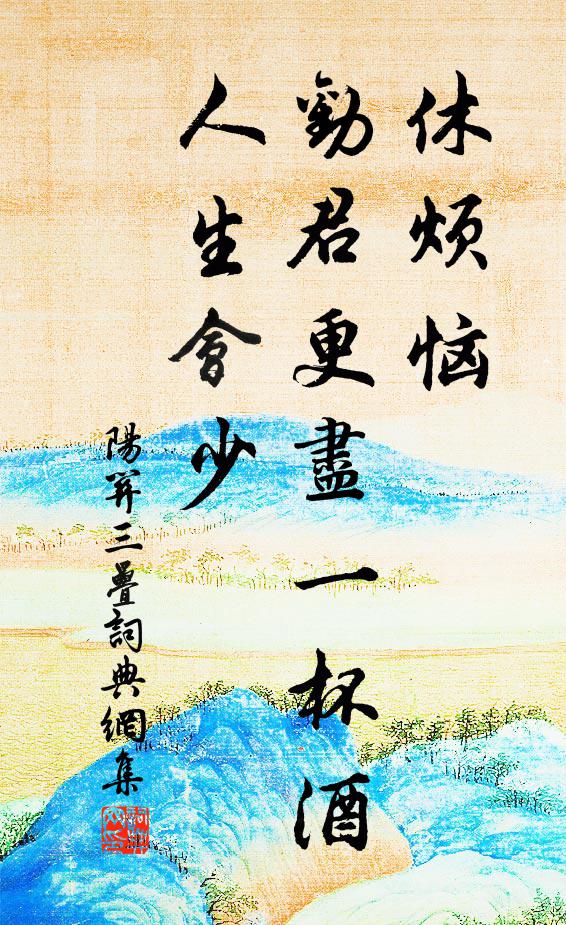 休烦恼
勸君更盡一杯酒
人生會少
陽关三疊詞典網集